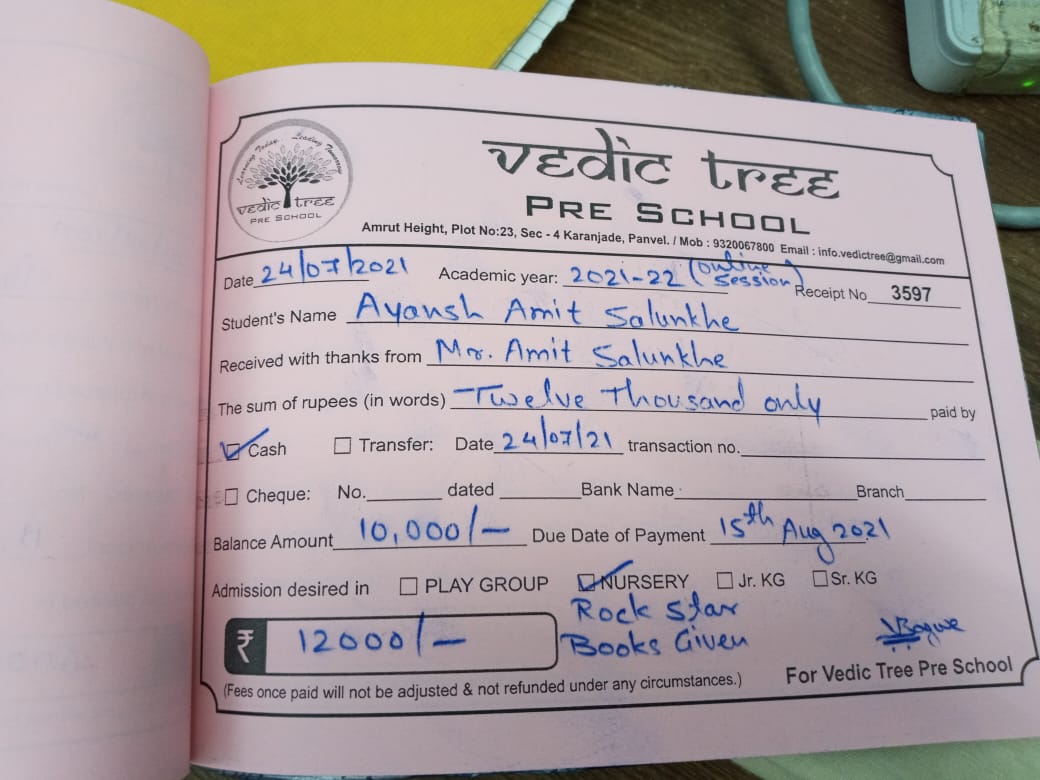 Learning Today... Leading Tomorrow
vedic tree
PRE SCHOOL
vedic tree
PRE SCHOOL
Amrut Height, Plot No:23, Sec - 4 Karanjade, Panvel. / Mob : 9320067800 Email : info.vedictree@gmail.com
Date 24/07/2021 Academic year: 2021-22 (online session) Receipt No 3597
Student's Name Ayansh Amit Salunkhe
Received with thanks from Mr. Amit Salunkhe
The sum of rupees (in words) Twelve Thousand only paid by
Cash Transfer: Date 24/07/21 transaction no.
Cheque: No. dated Bank Name Branch
Balance Amount 10,000/- Due Date of Payment 15th Aug 2021
Admission desired in PLAY GROUP NURSERY Jr. KG Sr. KG
₹ 12000/- Rock Star
Books Given
For Vedic Tree Pre School
(Fees once paid will not be adjusted & not refunded under any circumstances.)